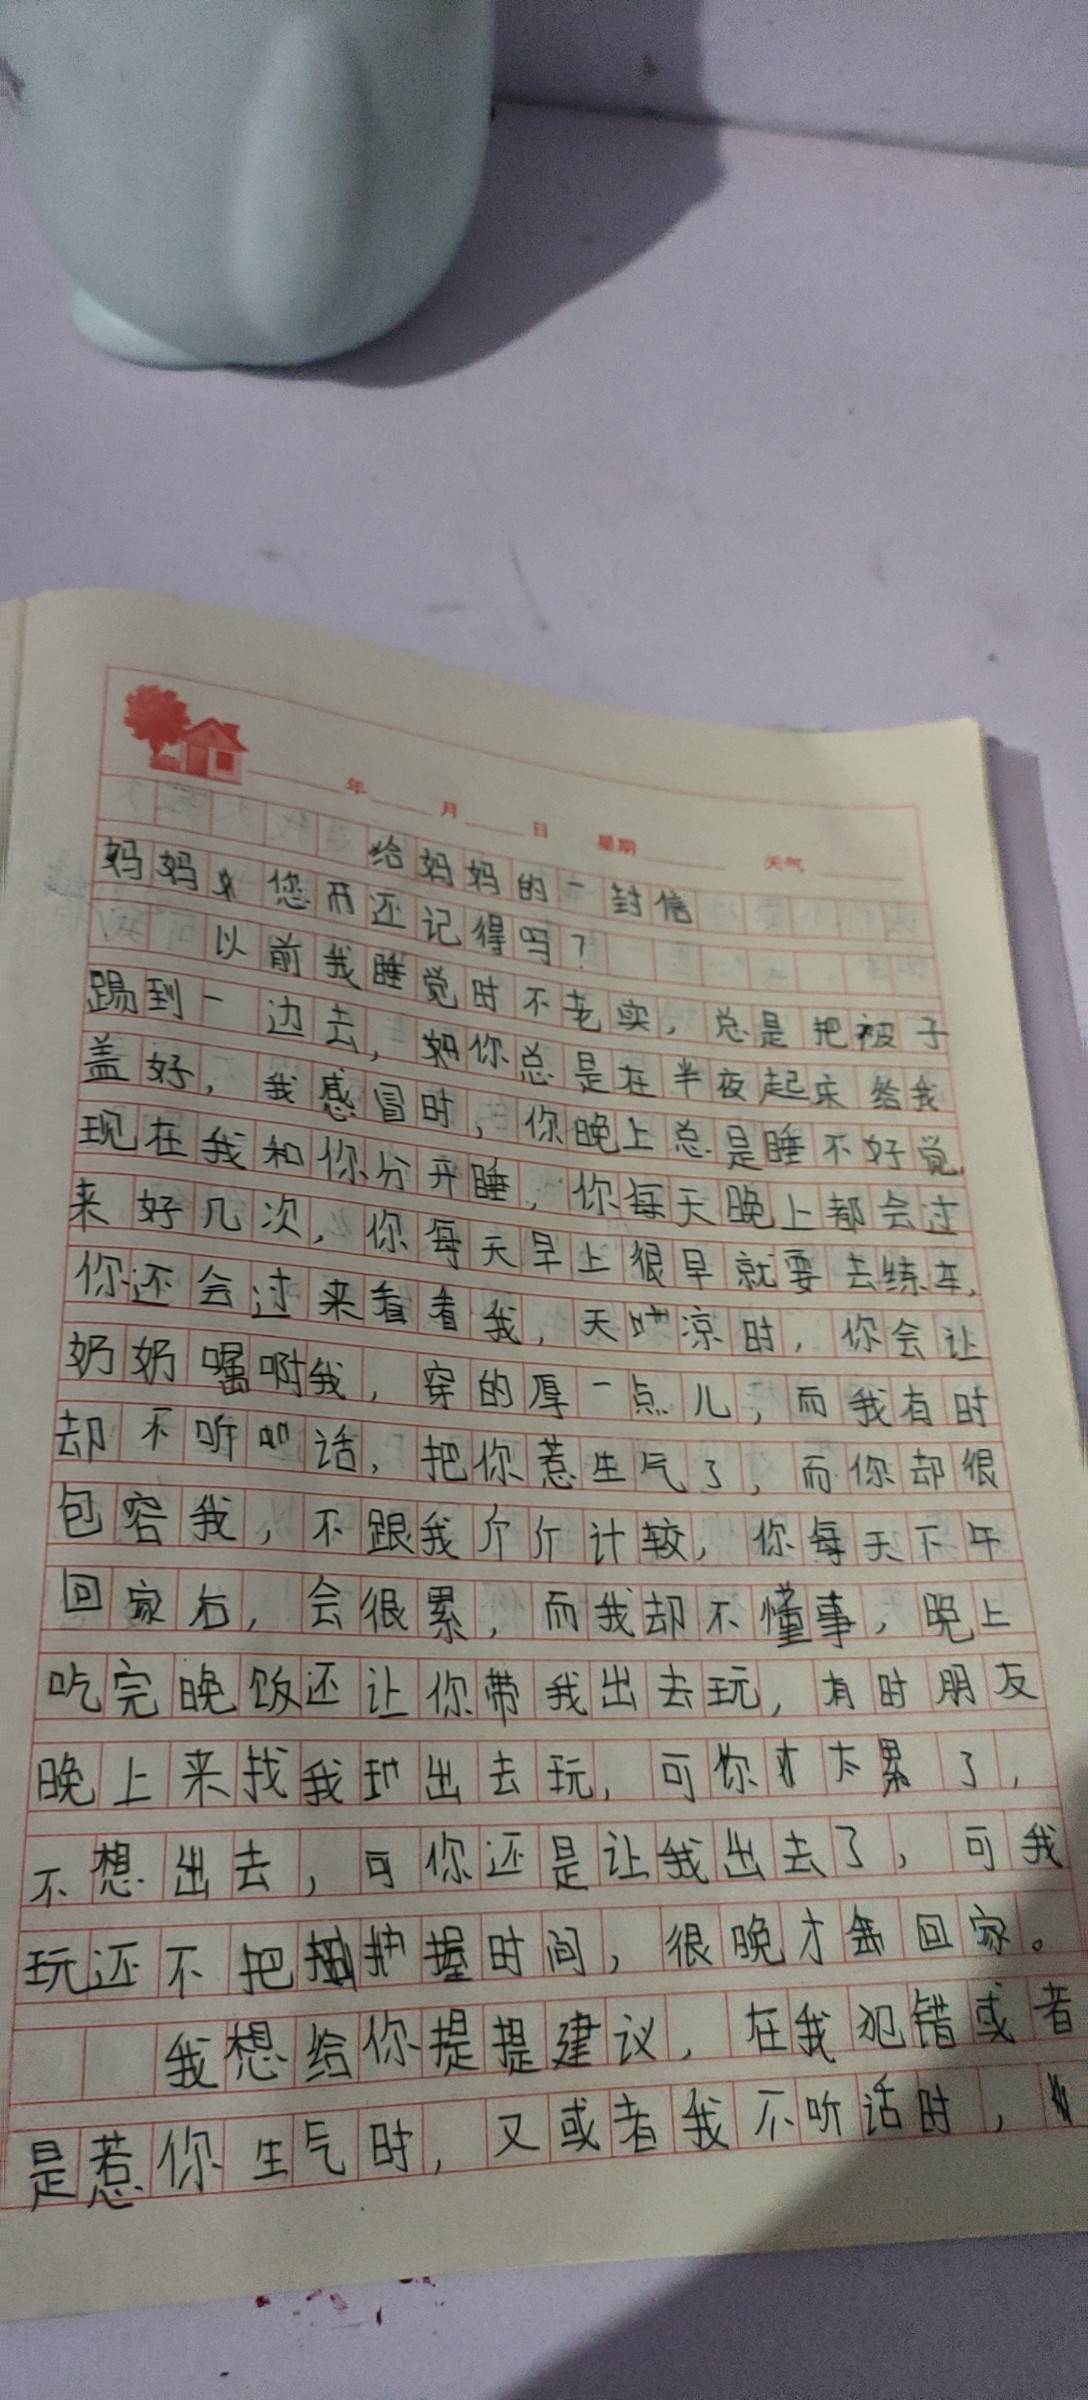 年 月 日 星期 天气
给妈妈的一封信
妈妈 您 还记得吗?
以前我睡觉时不老实,总是把被子
踢到一边去,你总是在半夜起床给我
盖好,我感冒时,你晚上总是睡不好觉,
现在我和你分开睡,你每天晚上都会过
来好几次,你每天早上很早就要去练车,
你还会过来看看我,天凉时,你会让
奶奶嘱啊我,穿的厚一点儿,而我有时
却不听话,把你惹生气了,而你却很
包容我,不跟我斤斤计较,你每天下午
回家右,会很累,而我却不懂事,晚上
吃完晚饭还让你带我出去玩,有时朋友
晚上来找我出去玩,可你太累了,
不想出去,可你还是让我出去了,可我
玩还不把握时间,很晚才回家。
我想给你提提建议,在我犯错或者
是惹你生气时,又或者我不听话时,